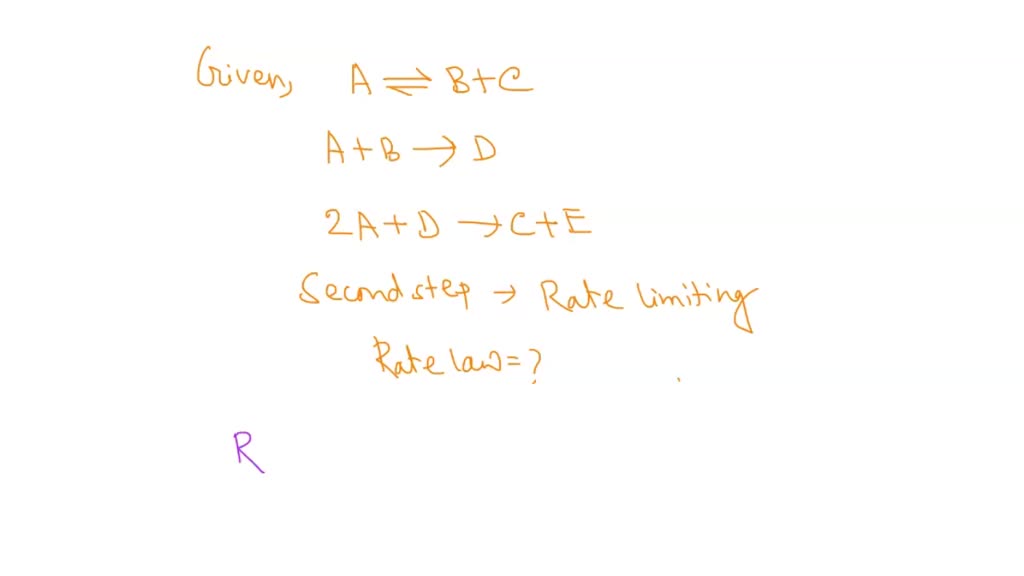 Given, A ⇌ B+C
A+B → D
2A+D → C+E
Second step → Rate limiting
Rate law = ?
R